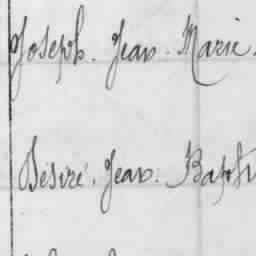 Joseph. Jean. Marie.
Desiré. Jean. Bapti